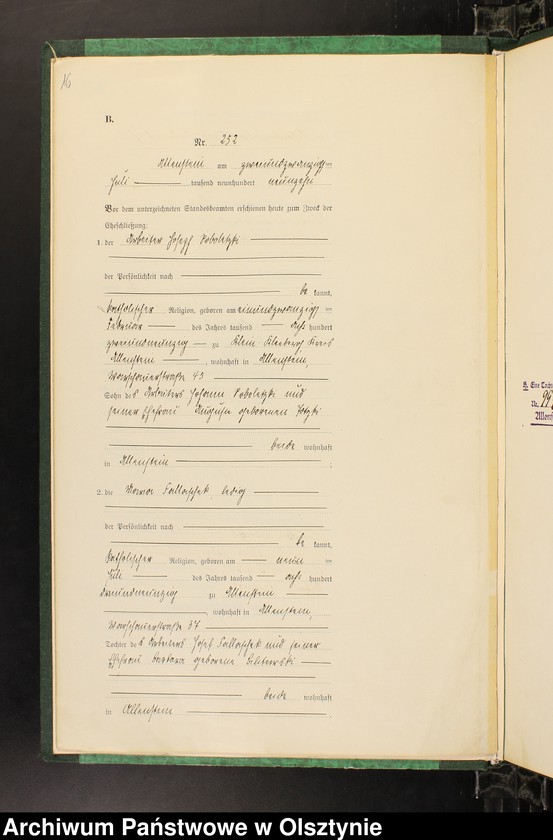 16
B.
Nr. 252
Allenstein am zweiundzwanzigsten
Juli tausend neunhundert neunzehn
Vor dem unterzeichneten Standesbeamten erschienen heute zum Zweck der
Eheschließung:
1. der Arbeiter Josef
der Persönlichkeit nach
be kannt,
katholischer Religion, geboren am
Februar des Jahres tausend acht hundert
zweiundneunzig zu Klein Kleeberg Kreis
Allenstein, wohnhaft in Allenstein,
Warschauerstraße 43
Sohn des Arbeiters Johann und
seiner Ehefrau Auguste geborenen
beide wohnhaft
in Allenstein
2. die Maria ledig
der Persönlichkeit nach
be kannt,
katholischer Religion, geboren am neun
Juli des Jahres tausend acht hundert
zu Allenstein
, wohnhaft in Allenstein,
Warschauerstraße 37
Tochter des Arbeiters Josef und seiner
Ehefrau Barbara geborene
beide wohnhaft
in Allenstein
B. Eine
Nr.
Allens
Archiwum Państwowe w Olsztynie